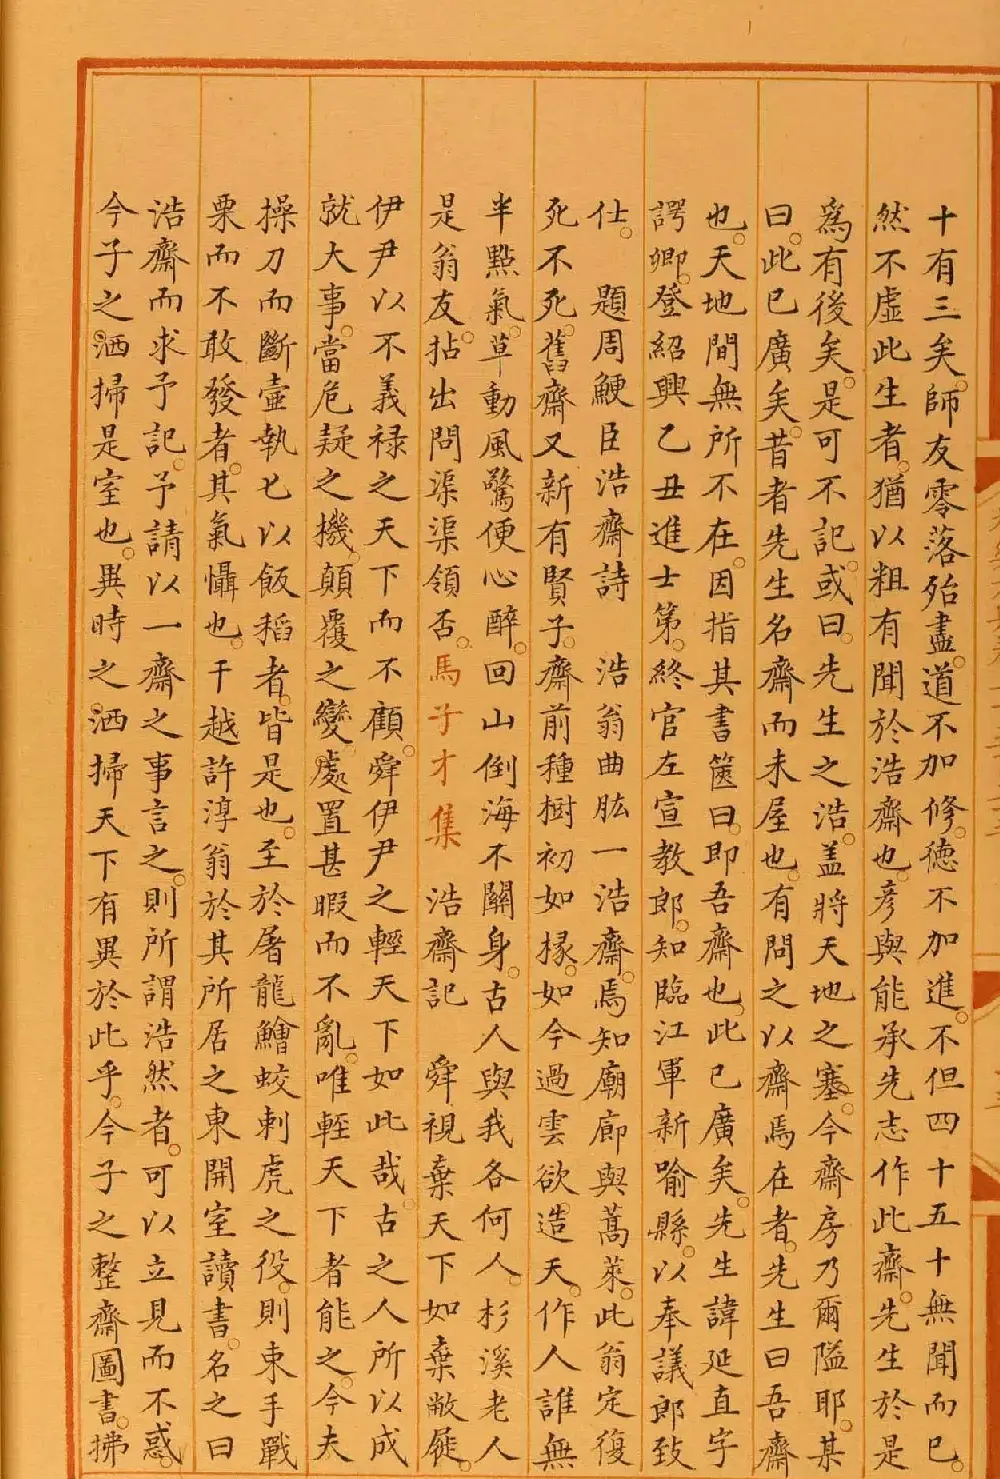 十有三矣。師友零落殆盡。道不加修。德不加進。不但四十五十無聞而已。
然不虛此生者。猶以粗有聞於浩齋也。彥與能承先志作此齋。先生於是
為有後矣。是可不記。或曰。先生之浩。盖將天地之塞。今齋房乃爾隘耶。某
曰。此已廣矣。昔者先生名齋而未屋也。有問之以齋焉在者。先生曰吾齋
也。天地間無所不在。因指其書篋曰。即吾齋也。此已廣矣。先生諱延直字
諤卿。登紹興乙丑進士第。終官左宣教郎。知臨江軍新喻縣。以奉議郎致
仕。 題周鯁臣浩齋詩 浩翁曲肱一浩齋。焉知廟廊與蒿萊。此翁定復
死不死。舊齋又新有賢子。齋前種樹初如椽。如今過雲欲造天。作人誰無
半點氣。草動風驚便心醉。回山倒海不關身。古人與我各何人。杉溪老人
是翁友。拈出問渠渠領否。馬子才集 浩齋記 舜視棄天下如棄敝屣。
伊尹以不義祿之天下而不顧。舜伊尹之輕天下如此哉。古之人所以成
就大事。當危疑之機。顛覆之變。處置甚暇而不亂。唯輕天下者能之。今夫
操刀而斷壺執匕以飯稻者。皆是也。至於屠龍鱠蛟刺虎之役。則束手戰
栗而不敢發者。其氣懾也。干越許淳翁於其所居之東開室讀書。名之曰
浩齋而求予記。予請以一齋之事言之。則所謂浩然者。可以立見而不惑。
今子之洒掃是室也。異時之洒掃天下有異於此乎。今子之整齋圖書。拂